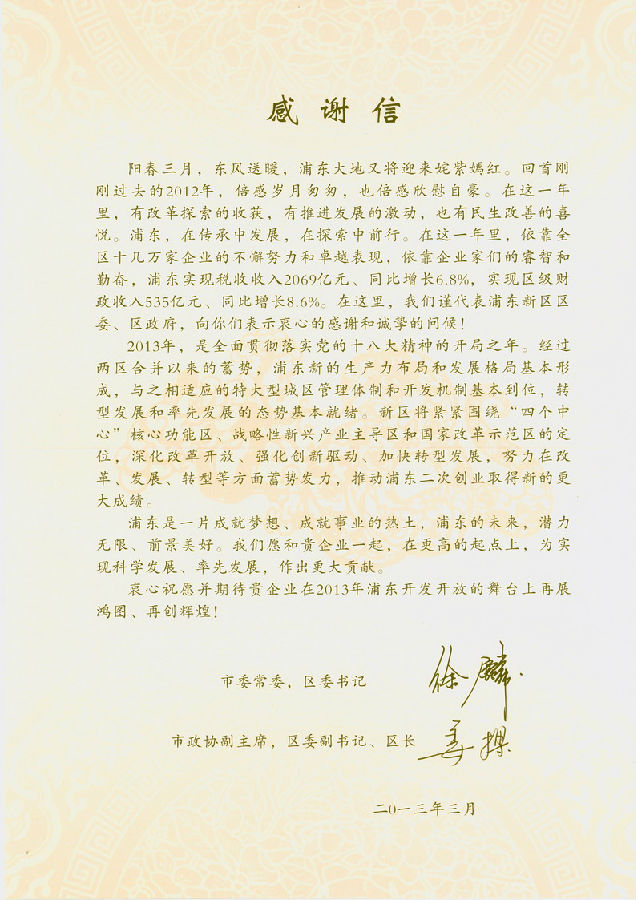 感谢信
阳春三月，东风送暖，浦东大地又将迎来姹紫嫣红。回首刚
刚过去的2012年，倍感岁月匆匆，也倍感欣慰自豪。在这一年
里，有改革探索的收获，有推进发展的激动，也有民生改善的喜
悦。浦东，在传承中发展，在探索中前行。在这一年里，依靠全
区十几万家企业的不懈努力和卓越表现，依靠企业家们的睿智和
勤奋，浦东实现税收收入2069亿元、同比增长6.8%，实现区级财
政收入535亿元、同比增长8.6%。在这里，我们谨代表浦东新区区
委、区政府，向你们表示衷心的感谢和诚挚的问候！
2013年，是全面贯彻落实党的十八大精神的开局之年。经过
两区合并以来的蓄势，浦东新的生产力布局和发展格局基本形
成，与之相适应的特大型城区管理体制和开发机制基本到位，转
型发展和率先发展的态势基本就绪。新区将紧紧围绕“四个中
心”核心功能区、战略性新兴产业主导区和国家改革示范区的定
位，深化改革开放、强化创新驱动、加快转型发展，努力在改
革、发展、转型等方面蓄势发力，推动浦东二次创业取得新的更
大成绩。
浦东是一片成就梦想、成就事业的热土，浦东的未来，潜力
无限、前景美好。我们愿和贵企业一起，在更高的起点上，为实
现科学发展、率先发展，作出更大贡献。
衷心祝愿并期待贵企业在2013年浦东开发开放的舞台上再展
鸿图、再创辉煌！
市委常委，区委书记 徐麟
市政协副主席，区委副书记、区长 姜樑
二〇一三年三月